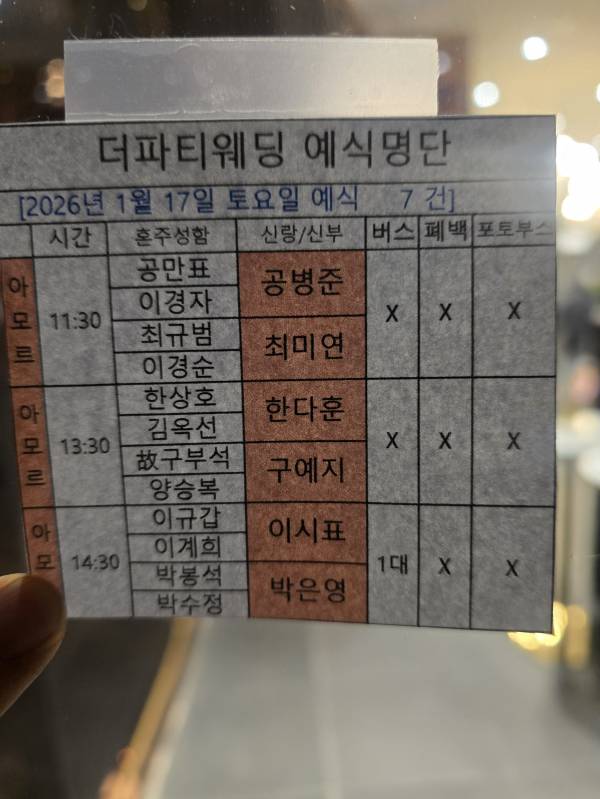 더파티웨딩 예식명단
[2026년 1월 17일 토요일 예식 7 건]
시간 혼주성함 신랑/신부 버스 폐백 포토부스
아모르 11:30 공만표 공병준 X X X
이경자
최규범 최미연
이경순
아모르 13:30 한상호 한다훈 X X X
김옥선
故구부석 구예지
양승복
아모 14:30 이규갑 이시표 1대 X X
이계희
박봉석 박은영
박수정